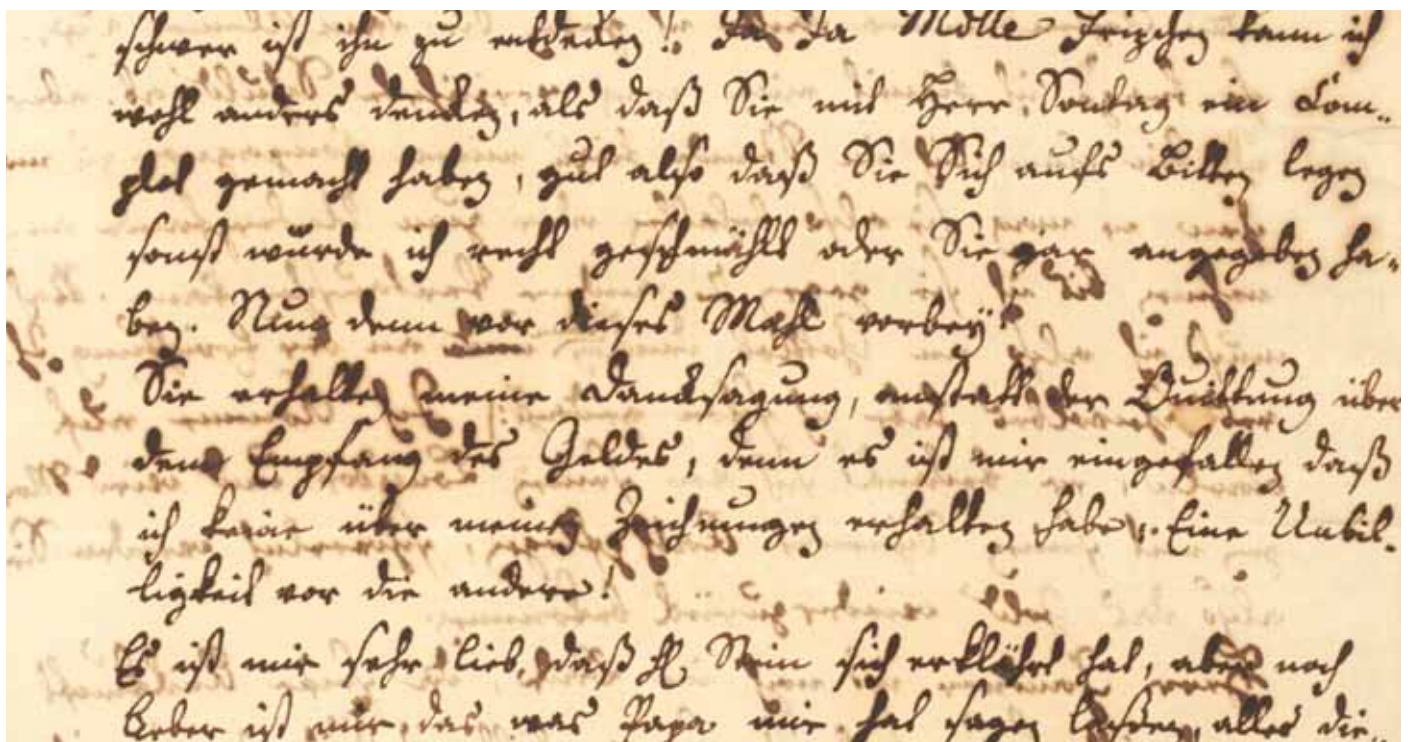 schwer ist ihn zu entdecken! Ja Ja Molle Frizchen kann ich
wohl anders dencken, als daß Sie mit Herr Sontag ein Com-
plot gemacht haben, gut also daß Sie Sich aufs Bitten legen
sonst würde ich recht geschmählt oder Sie gar angegeben ha-
ben. Nun denn vor dieses Mahl vorbey!
Sie erhalten meine Dancksagung, anstatt der Quittung über
den Empfang des Geldes, denn es ist mir eingefallen daß
ich keine über meine Zeichnungen erhalten habe. Eine Unbil-
ligkeit vor die andere!
Es ist mir sehr lieb, daß Stein sich erklährt hat, aber noch
lieber ist mir, das was Papa mir hat sagen laßen, alles die-